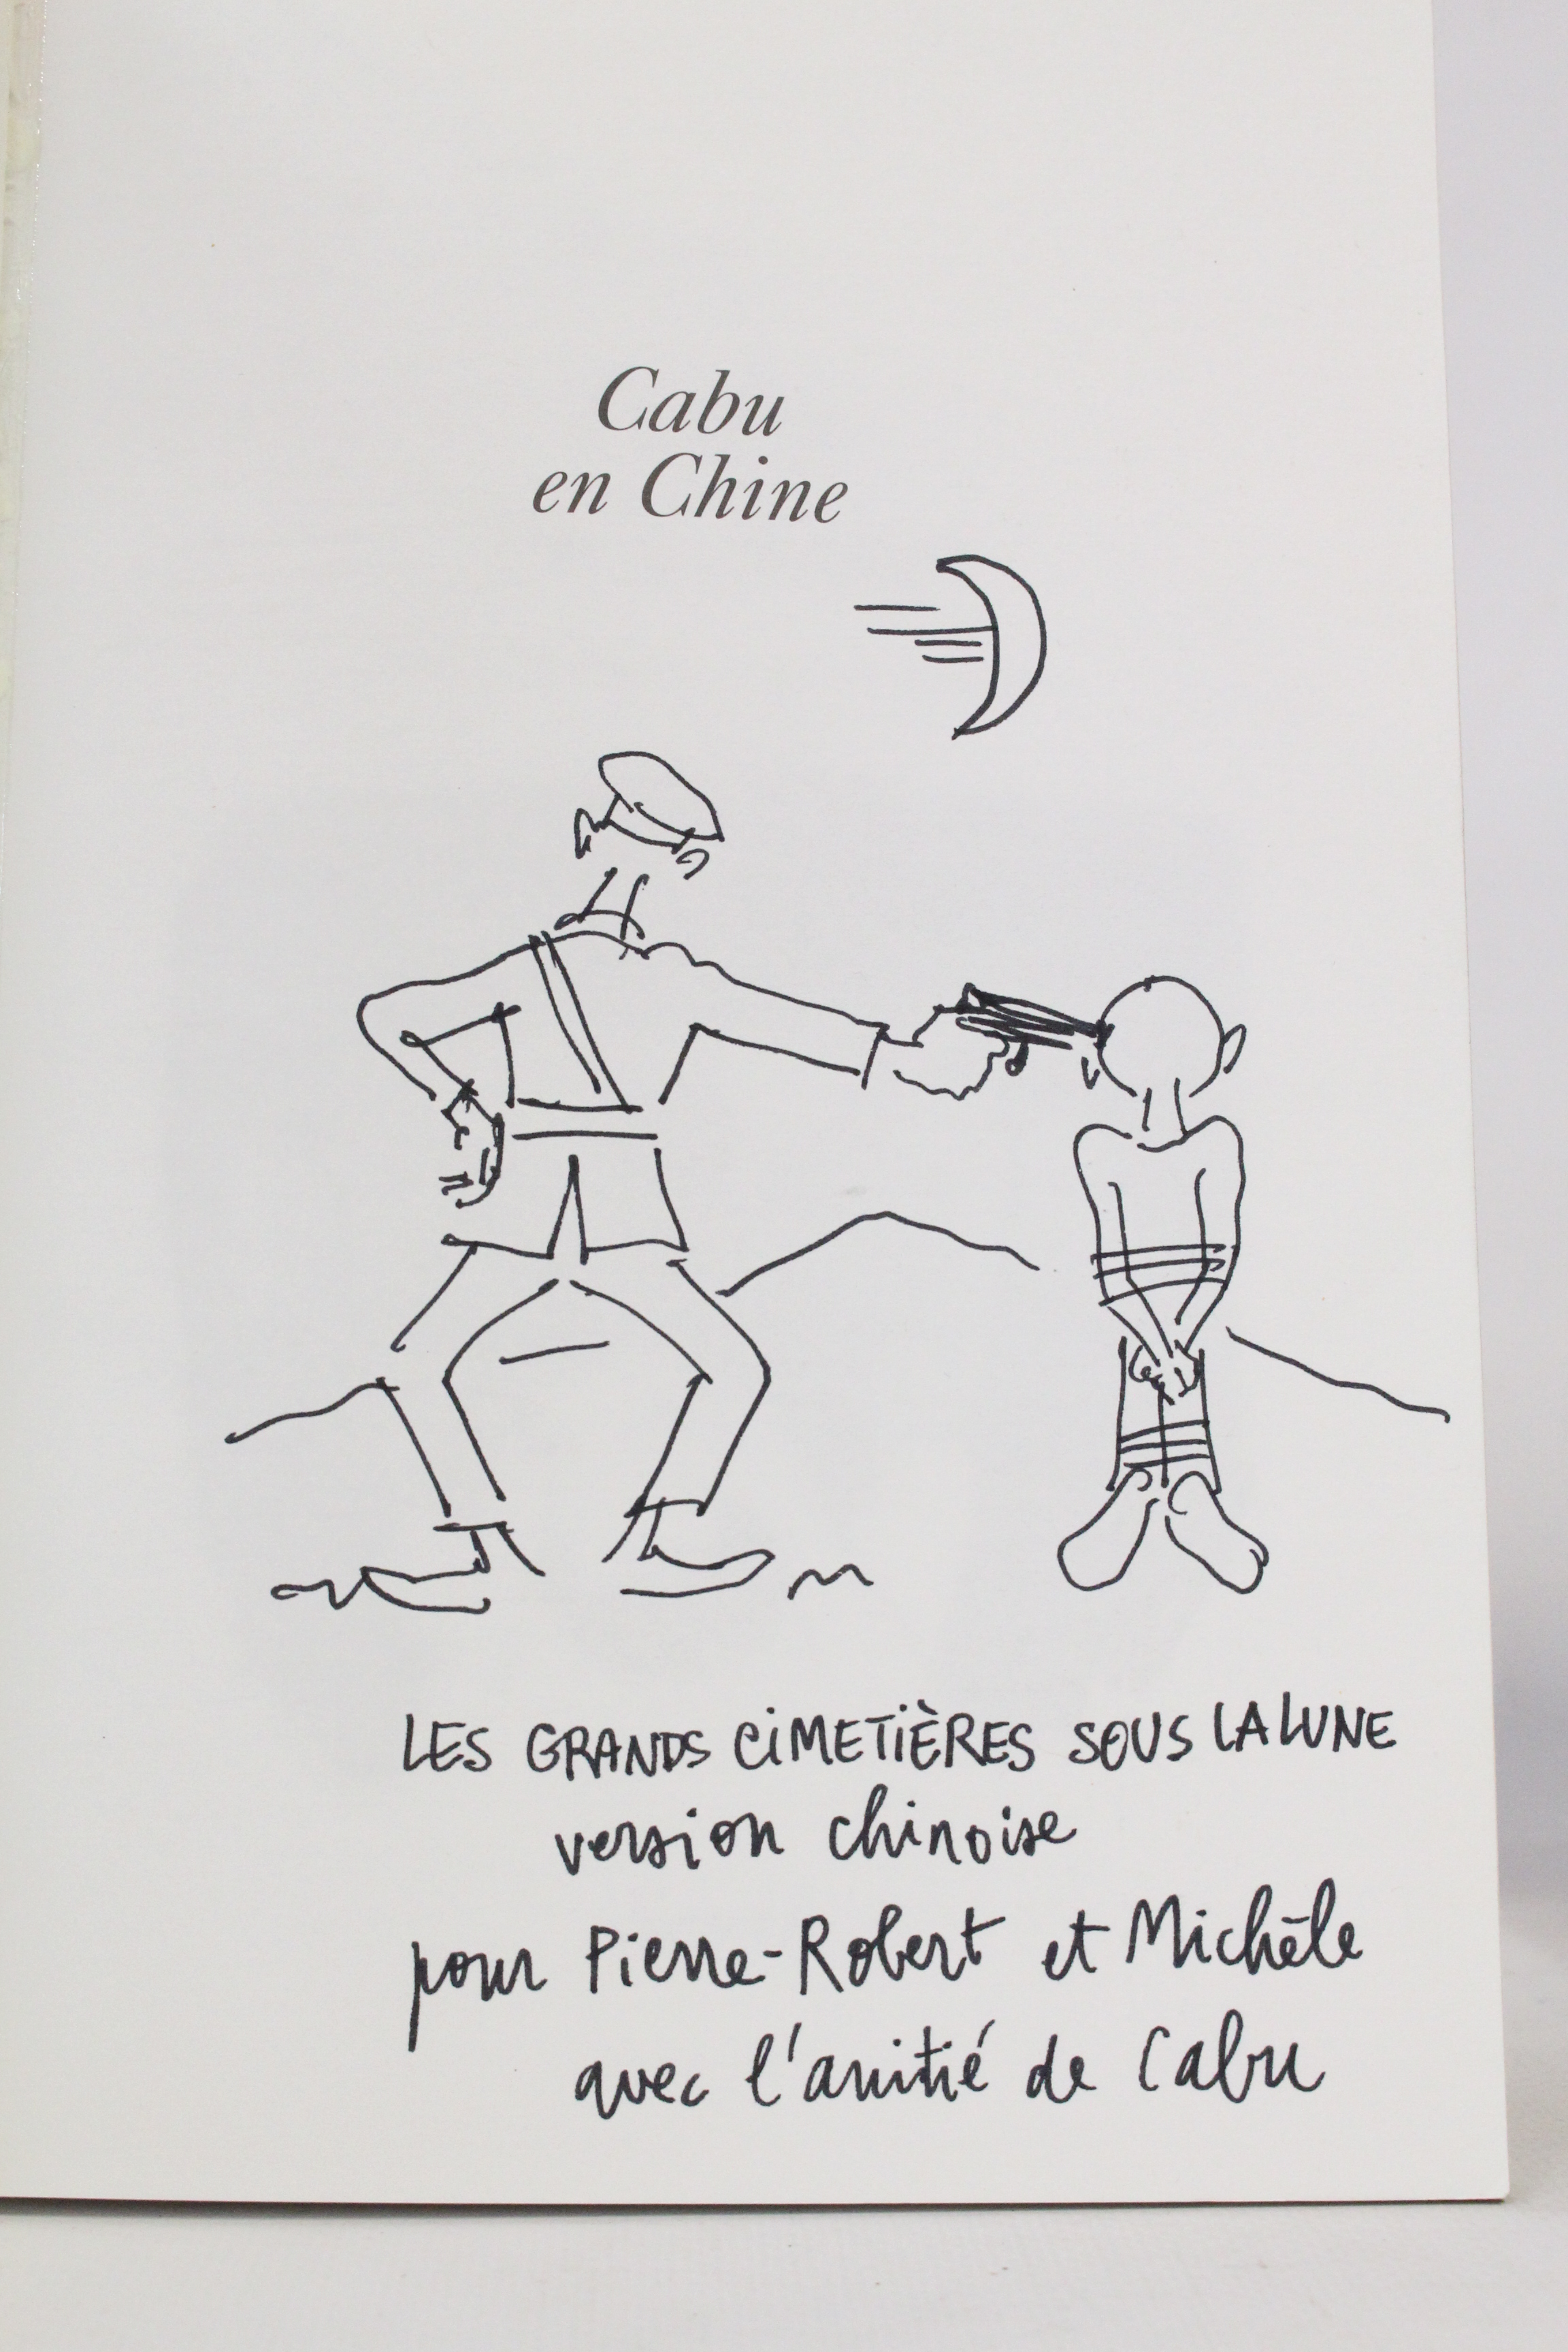 Cabu
en Chine
LES GRANDS CIMETIÈRES SOUS LA LUNE
version chinoise
pour Pierre-Robert et Michèle
avec l'amitié de Cabu